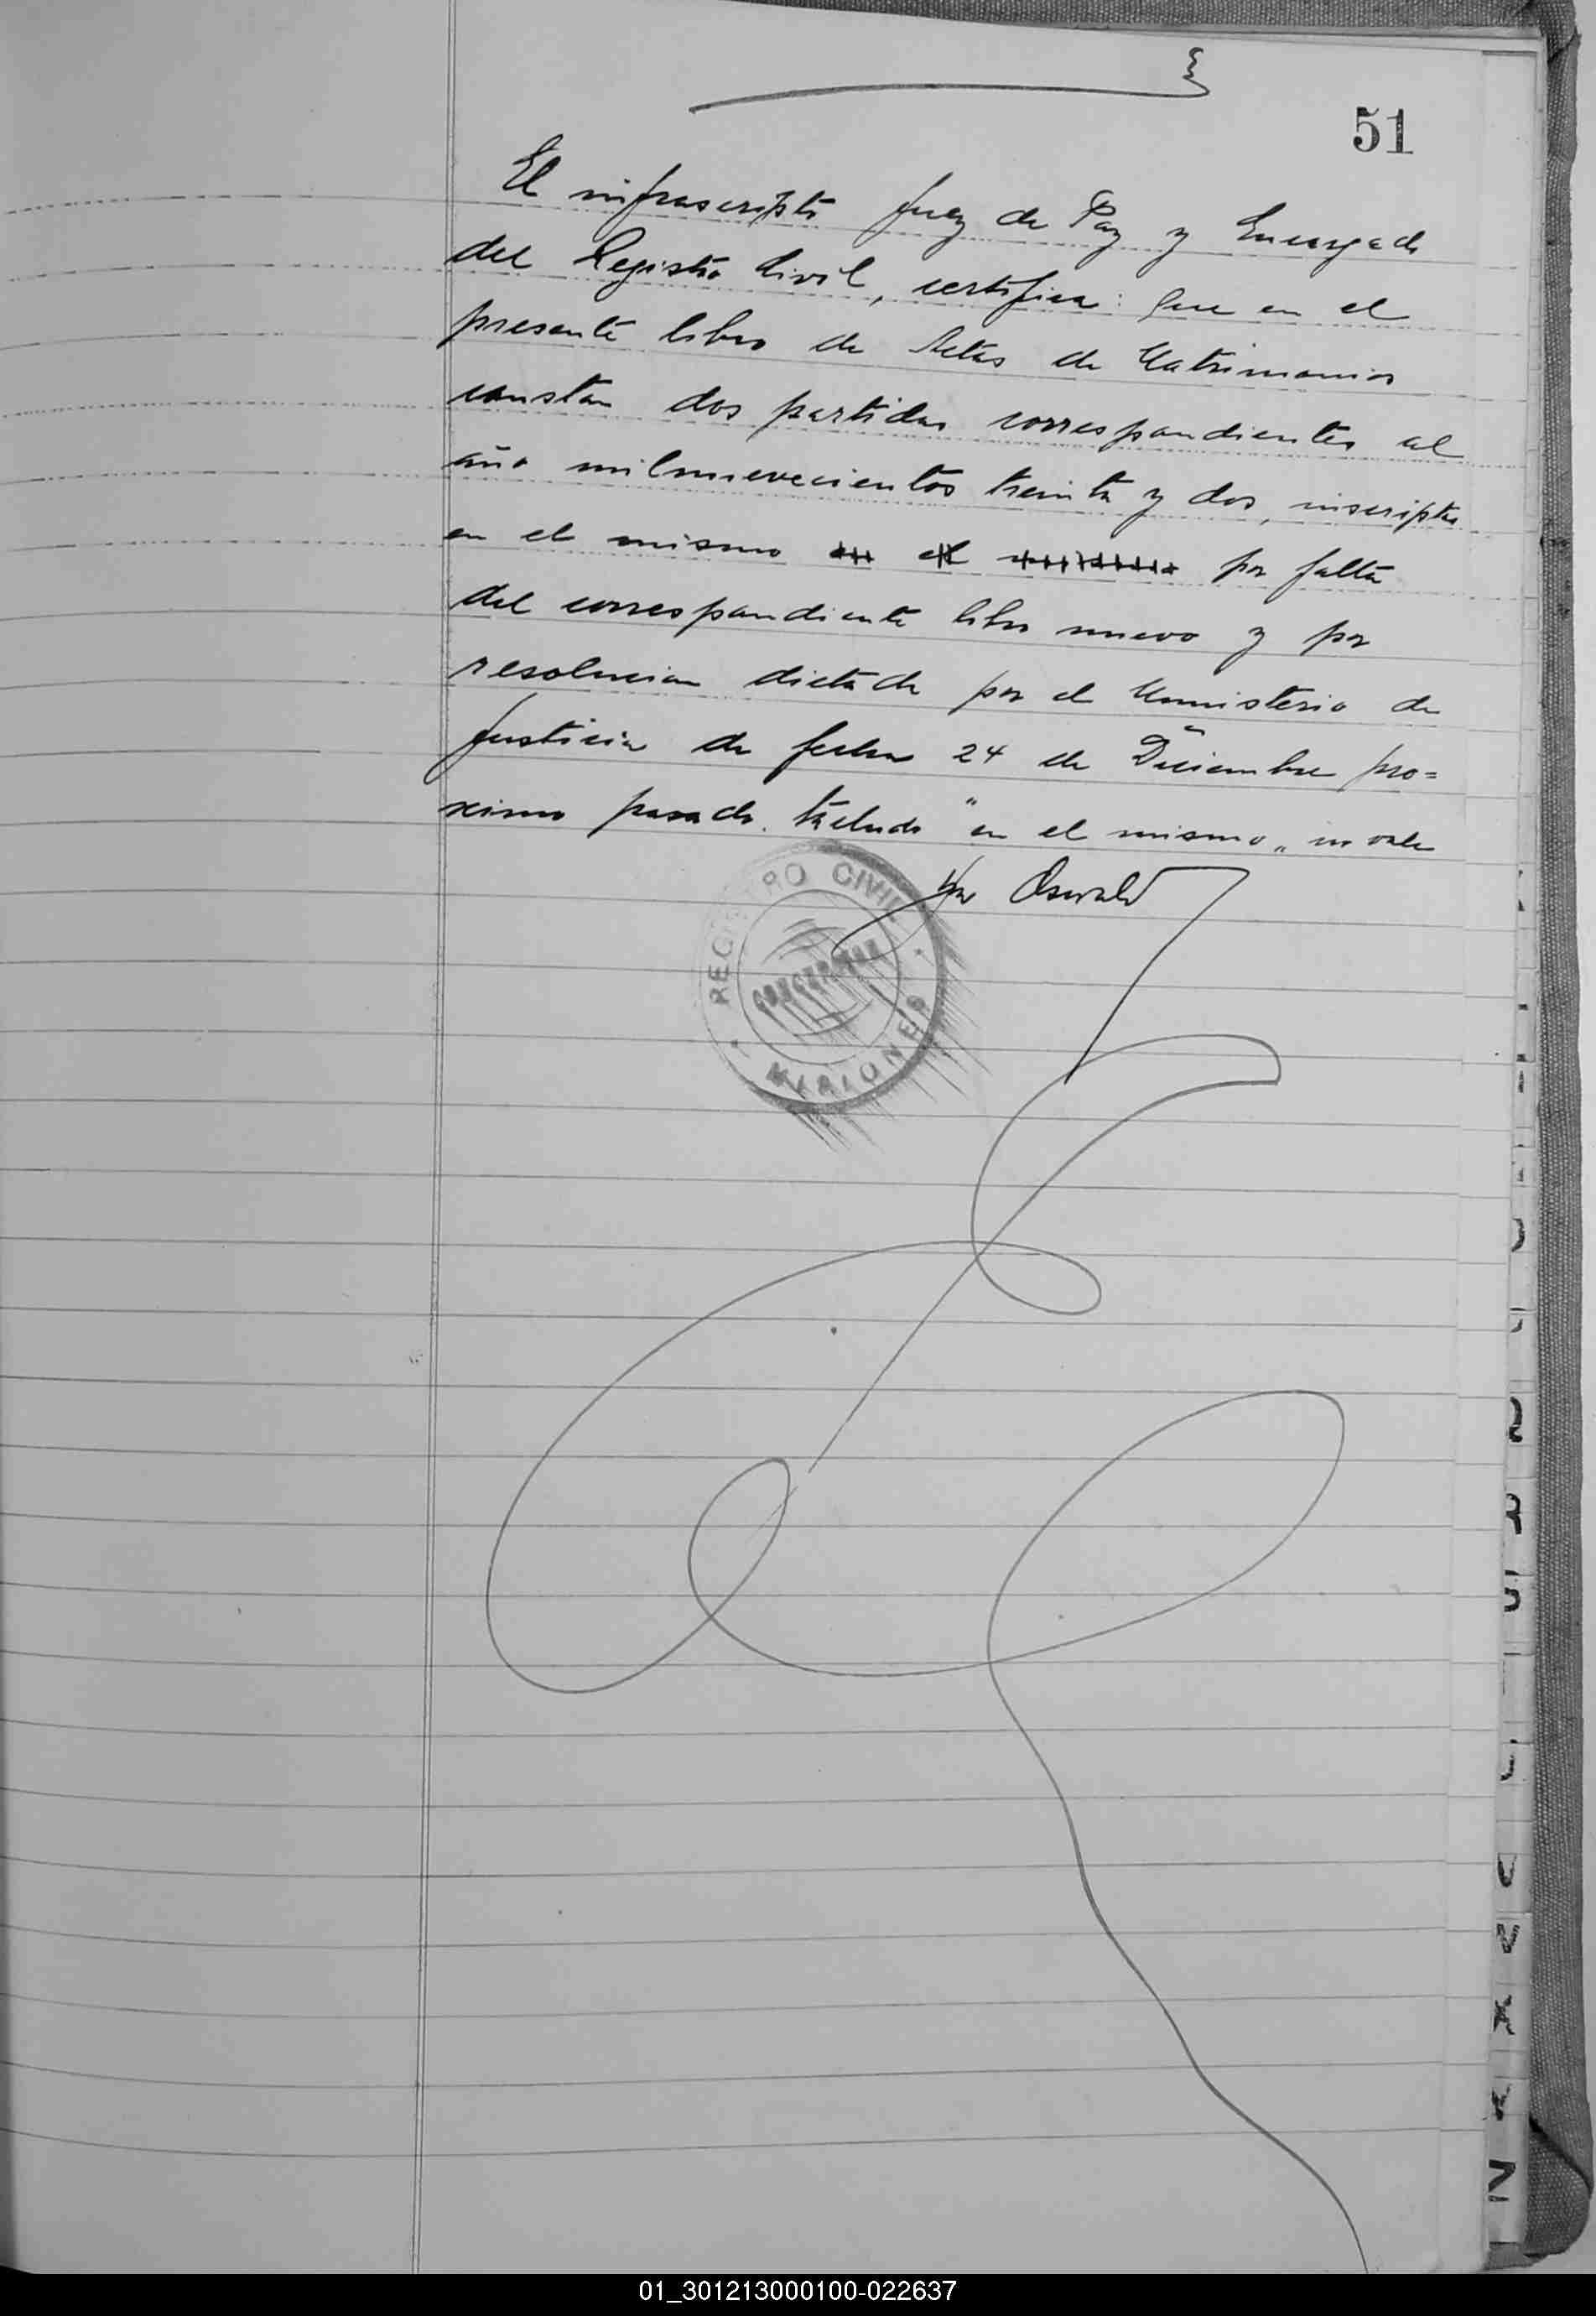 51
El infrascripto Juez de Paz y Encargado
del Registro Civil, certifica: Que en el
presente libro de Actas de Matrimonios
constan dos partidas correspondientes al
año milnuevecientos treinta y dos, inscriptas
en el mismo en el mismo por falta
del correspondiente libro nuevo y por
resolucion dictada por el Ministerio de
Justicia de fecha 24 de Diciembre pro=
ximo pasado. Tachado "en el mismo" no vale
Oswald
REGISTRO CIVIL
CONCEPCION
MISIONES
01_301213000100-022637